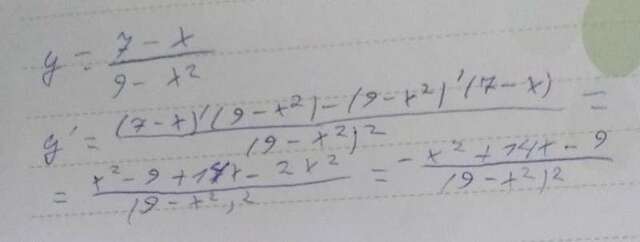 y = (7 - x)/(9 - x²)
y' = ((7-x)'(9-x²) - (9-x²)'(7-x))/(9-x²)² =
= (x² - 9 + 14x - 2x²)/(9-x²)² = (-x² + 14x - 9)/(9-x²)²